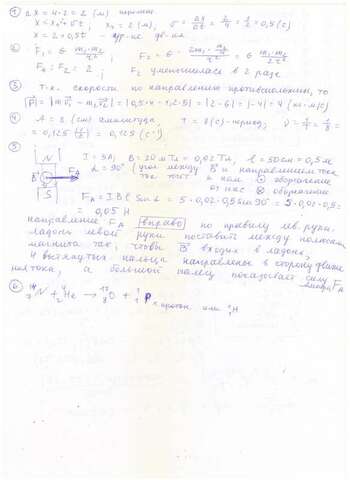 ① Δx = 4 - 2 = 2 (м)
x = x₀ + υt; x₀ = 2 (м), υ = Δx/Δt = 2/4 = 1/2 = 0,5 (
x = 2 + 0,5t -
② F₁ = G m₁·m₂/r² ; F₂ = G
F₁ : F₂ = 2 ; F₂ уменьшилась в 2 раза
③ т.к. скорости по направлению противоположны, то
= |2-6| = |-4| = 4 (кг·м/с)
④ A = 3 (см) амплитуда, T = 8 (с) - период; ν = 1/T = 1/8 =
= 0,125 (1/с) = 0,125 (с⁻¹)
⑤ I = 5А; B = 10 мТл = 0,01 Тл, l = 50 см = 0,5 м
N S B
α = 90° (угол между B и направлением тока
ток течёт к нам ⊙ обозначение
от нас ⊗ обозначение
F_A = I B l sin α = 5 · 0,01 · 0,5 sin 90° = 5 · 0,01 · 0,5 =
= 0,05 Н
направление F_A вправо по правилу лев. руки.
ладонь левой руки поставить между полюсами
магнита так, чтобы B входил в ладонь,
4 вытянутых пальца направлены в сторону движе
ния тока, а большой палец показывает силу
Ампера F_A
⑥ ¹⁴₇N + ⁴₂He → ¹⁷₈O + ¹₁p ← протон или ¹₁H